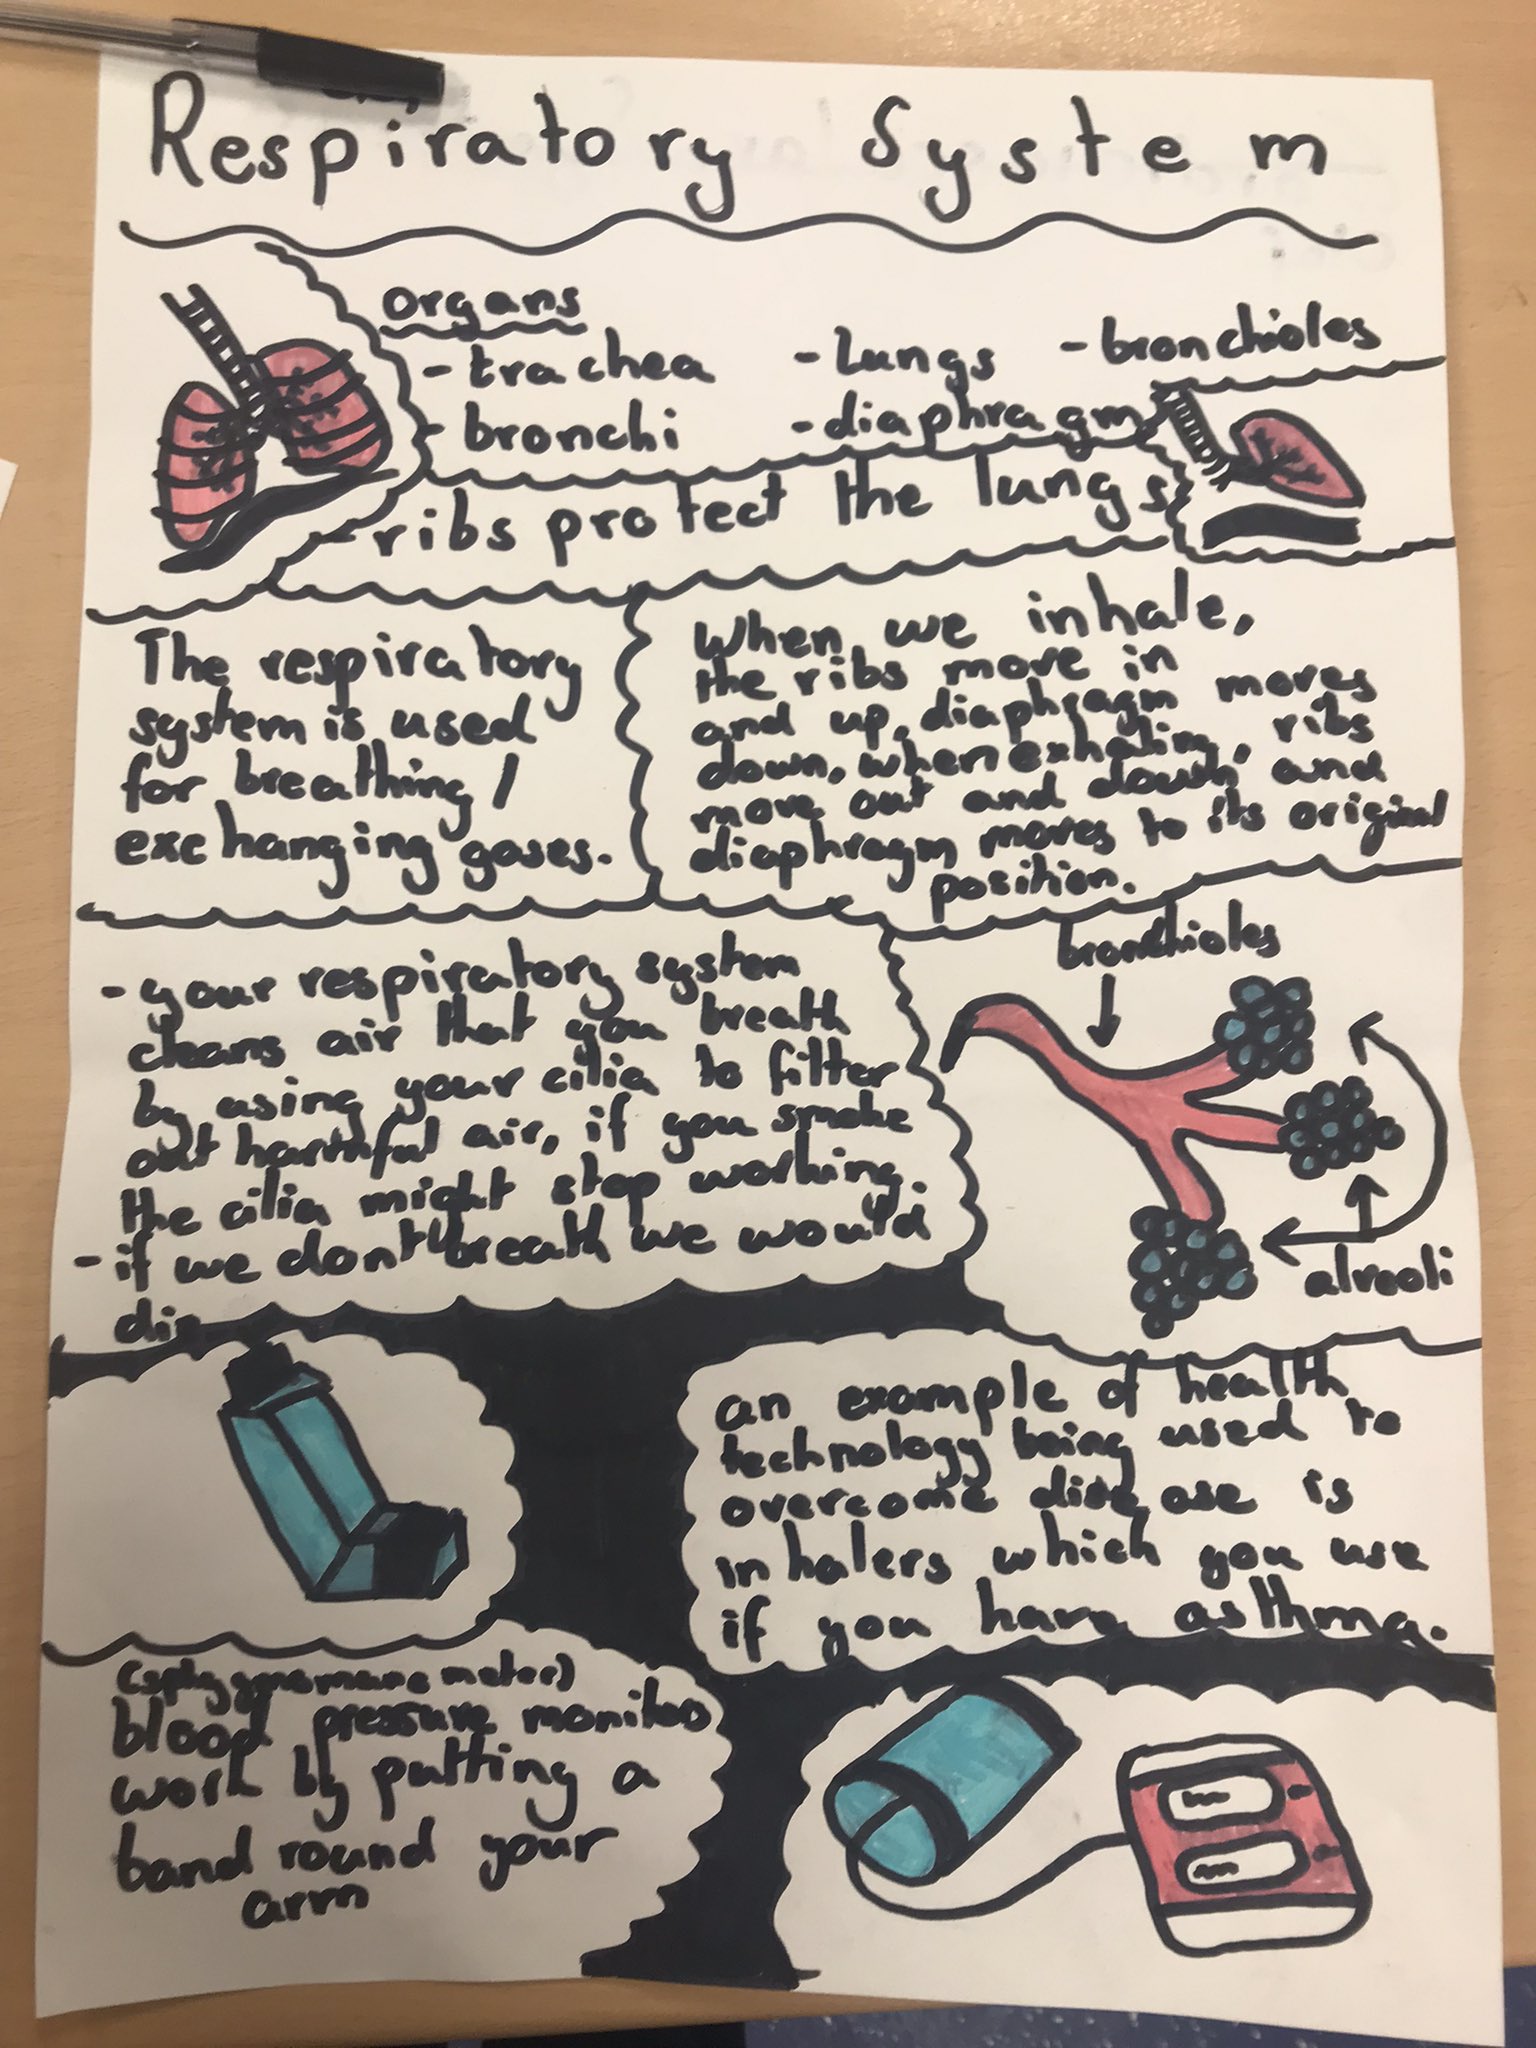 Respiratory System
organs
- trachea - lungs - bronchioles
- bronchi - diaphragm
- ribs protect the lungs
The respiratory
system is used
for breathing/
exchanging gases.
When we inhale,
the ribs move in
and up, diaphragm moves
down, when exhaling, ribs
move out and down and
diaphragm moves to its original
position.
- your respiratory system
cleans air that you breath
by using your cilia to filter
out harmful air, if you smoke
the cilia might stop working.
- if we dont breath we would
die
bronchioles
alveoli
an example of health
technology being used to
overcome disease is
inhalers which you use
if you have asthma.
blood pressure monitors
work by putting a
band round your
arm